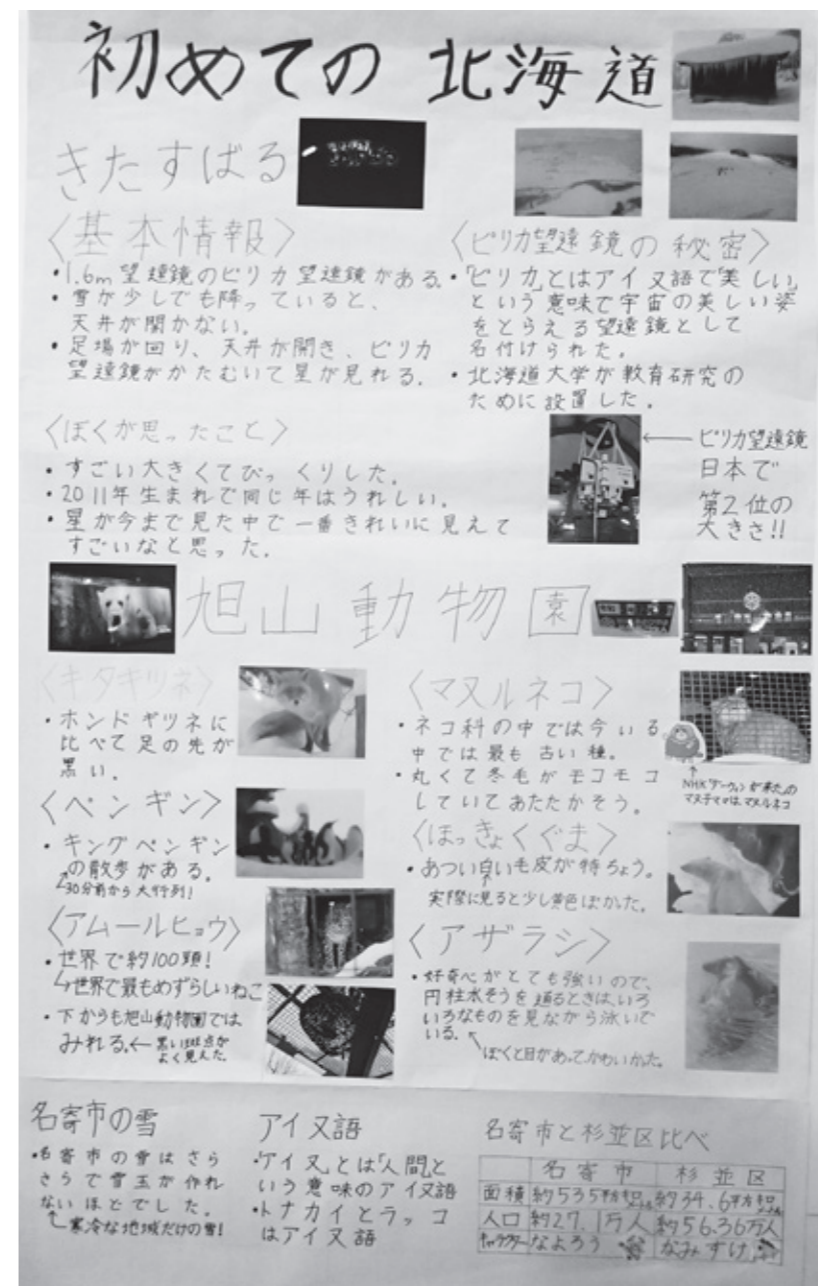 初めての 北海道
きたすばる
〈基本情報〉
・1.6m望遠鏡のピリカ望遠鏡がある。
・雪が少しでも降っていると、
天井が開かない。
・足場が回り、天井が開き、ピリカ
望遠鏡がかたむいて星が見れる。
〈ピリカ望遠鏡の秘密〉
・「ピリカ」とはアイヌ語で「美しい」
という意味で宇宙の美しい姿
をとらえる望遠鏡として
名付けられた。
・北海道大学が教育研究の
ために設置した。
〈ぼくが思ったこと〉
・すごい大きくてびっくりした。
・2011年生まれで同じ年はうれしい。
・星が今まで見た中で一番きれいに見えて
すごいなと思った。
← ピリカ望遠鏡
日本で
第2位の
大きさ!!
旭山動物園
〈キタキツネ〉
・ホンドギツネに
比べて足の先が
黒い。
〈ペンギン〉
・キングペンギン
の散歩がある。
30分前から大行列!
〈アムールヒョウ〉
・世界で約100頭!
↳世界で最もめずらしいねこ
・下からも旭山動物園では
みれる。←黒い斑点が
よく見えた。
〈マヌルネコ〉
・ネコ科の中では今いる
中では最も古い種。
・丸くて冬毛がモコモコ
していてあたたかそう。
NHK「ダーウィンが来た」の
マヌ子ママはマヌルネコ
〈ほっきょくぐま〉
・あつい白い毛皮が特ちょう。
実際に見ると少し黄色ぽかた。
〈アザラシ〉
・好奇心がとても強いので、
円柱水そうを通るときは、いろ
いろなものを見ながら泳いで
いる。
ぼくと目があってかわいかた。
名寄市の雪
・名寄市の雪はさら
さらで雪玉が作れ
ないほどでした。
寒冷な地域だけの雪!
アイヌ語
・アイヌとは「人間」と
いう意味のアイヌ語
・トナカイとラッコ
はアイヌ語
名寄市と杉並区比べ
名寄市 杉並区
面積 約535平方キロメートル 約34.6平方キロメートル
人口 約27.1万人 約56.36万人
キャラクター なよろう なみすけ